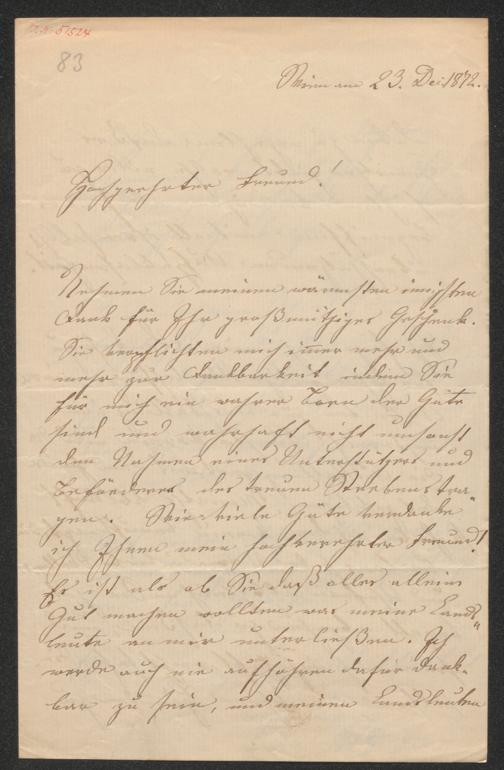 I.N. 51524
83
Wien am 23. Dec. 1872.
Hochgeehrter Freund!
Nehmen Sie meinen wärmsten innigsten
Dank für Ihr großmüthiges Geschenk.
Sie verpflichten mich immer mehr und
mehr zur Dankbarkeit indem Sie
für mich ein wahrer Born der Güte
sind und wahrhaft nicht umsonst
den Nahmen eines Unterstützers und
Beförderers des treuen Strebens tra-
gen. Wie viele Güte verdanke
ich Ihnen mein hochverehrter Freund!
Es ist als ob Sie daß alles allein
Gut machen wollten was meine Lands-
leute an mir unterließen. Ich
werde auch nie aufhören dafür dank-
bar zu sein, und meinen Landsleuten